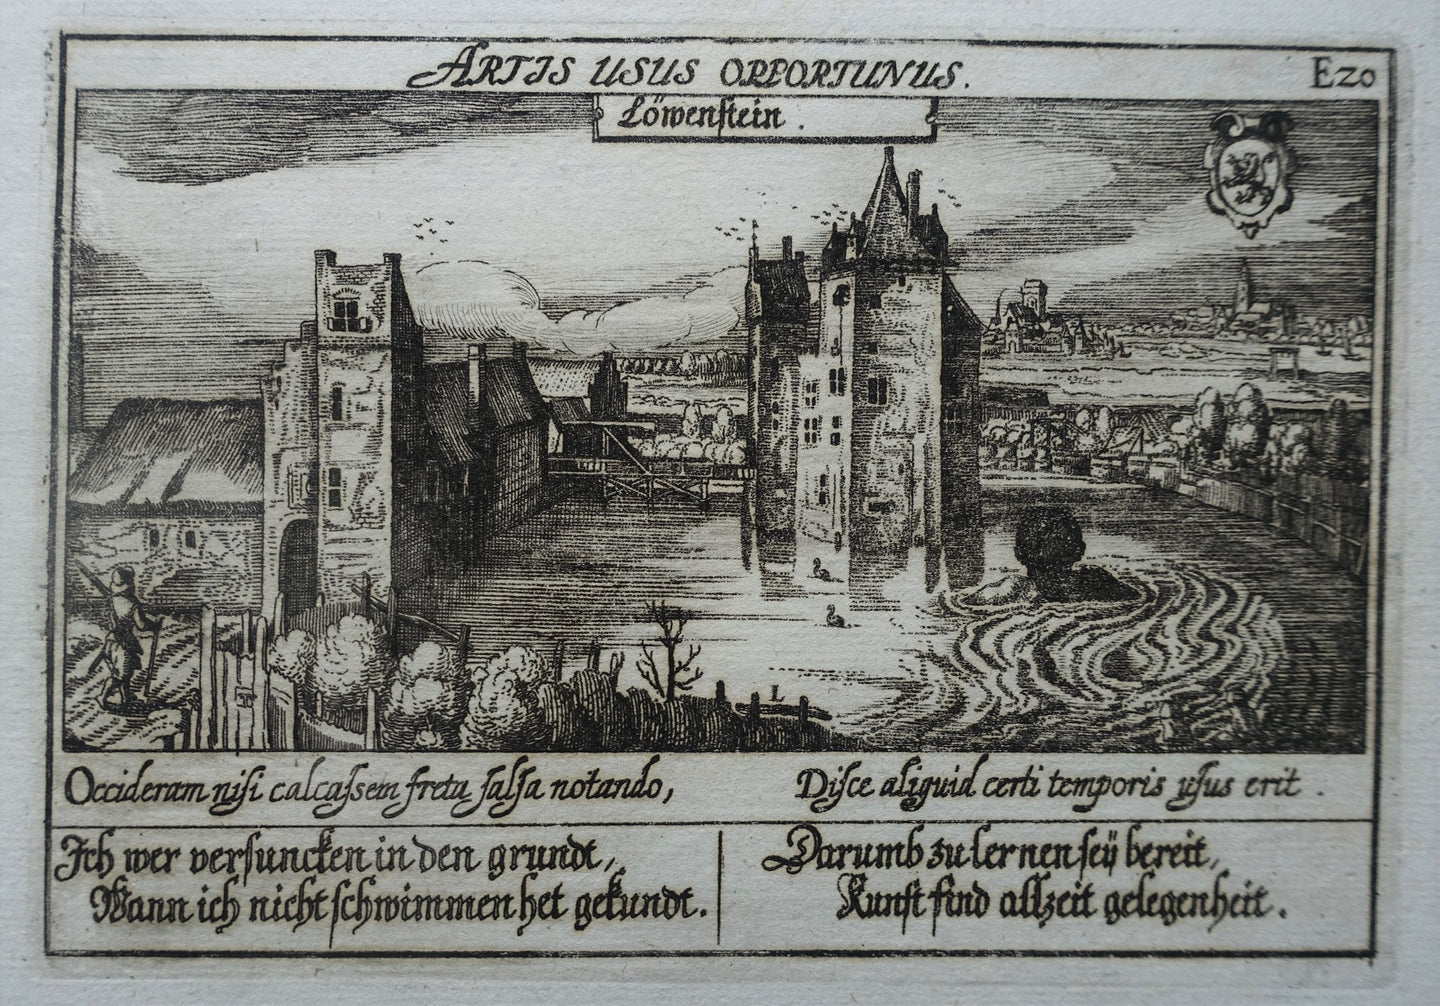 ARTIS USUS OPPORTUNUS.
E20
Löwenstein.
L
Occideram nisi calcassem freta salsa notando,
Disce aliquid certi temporis usus erit.
Ich wer versuncken in den grundt,
Wann ich nicht schwimmen het gekundt.
Darumb zu lernen seÿ bereit,
Kunst find allzeit gelegenheit.